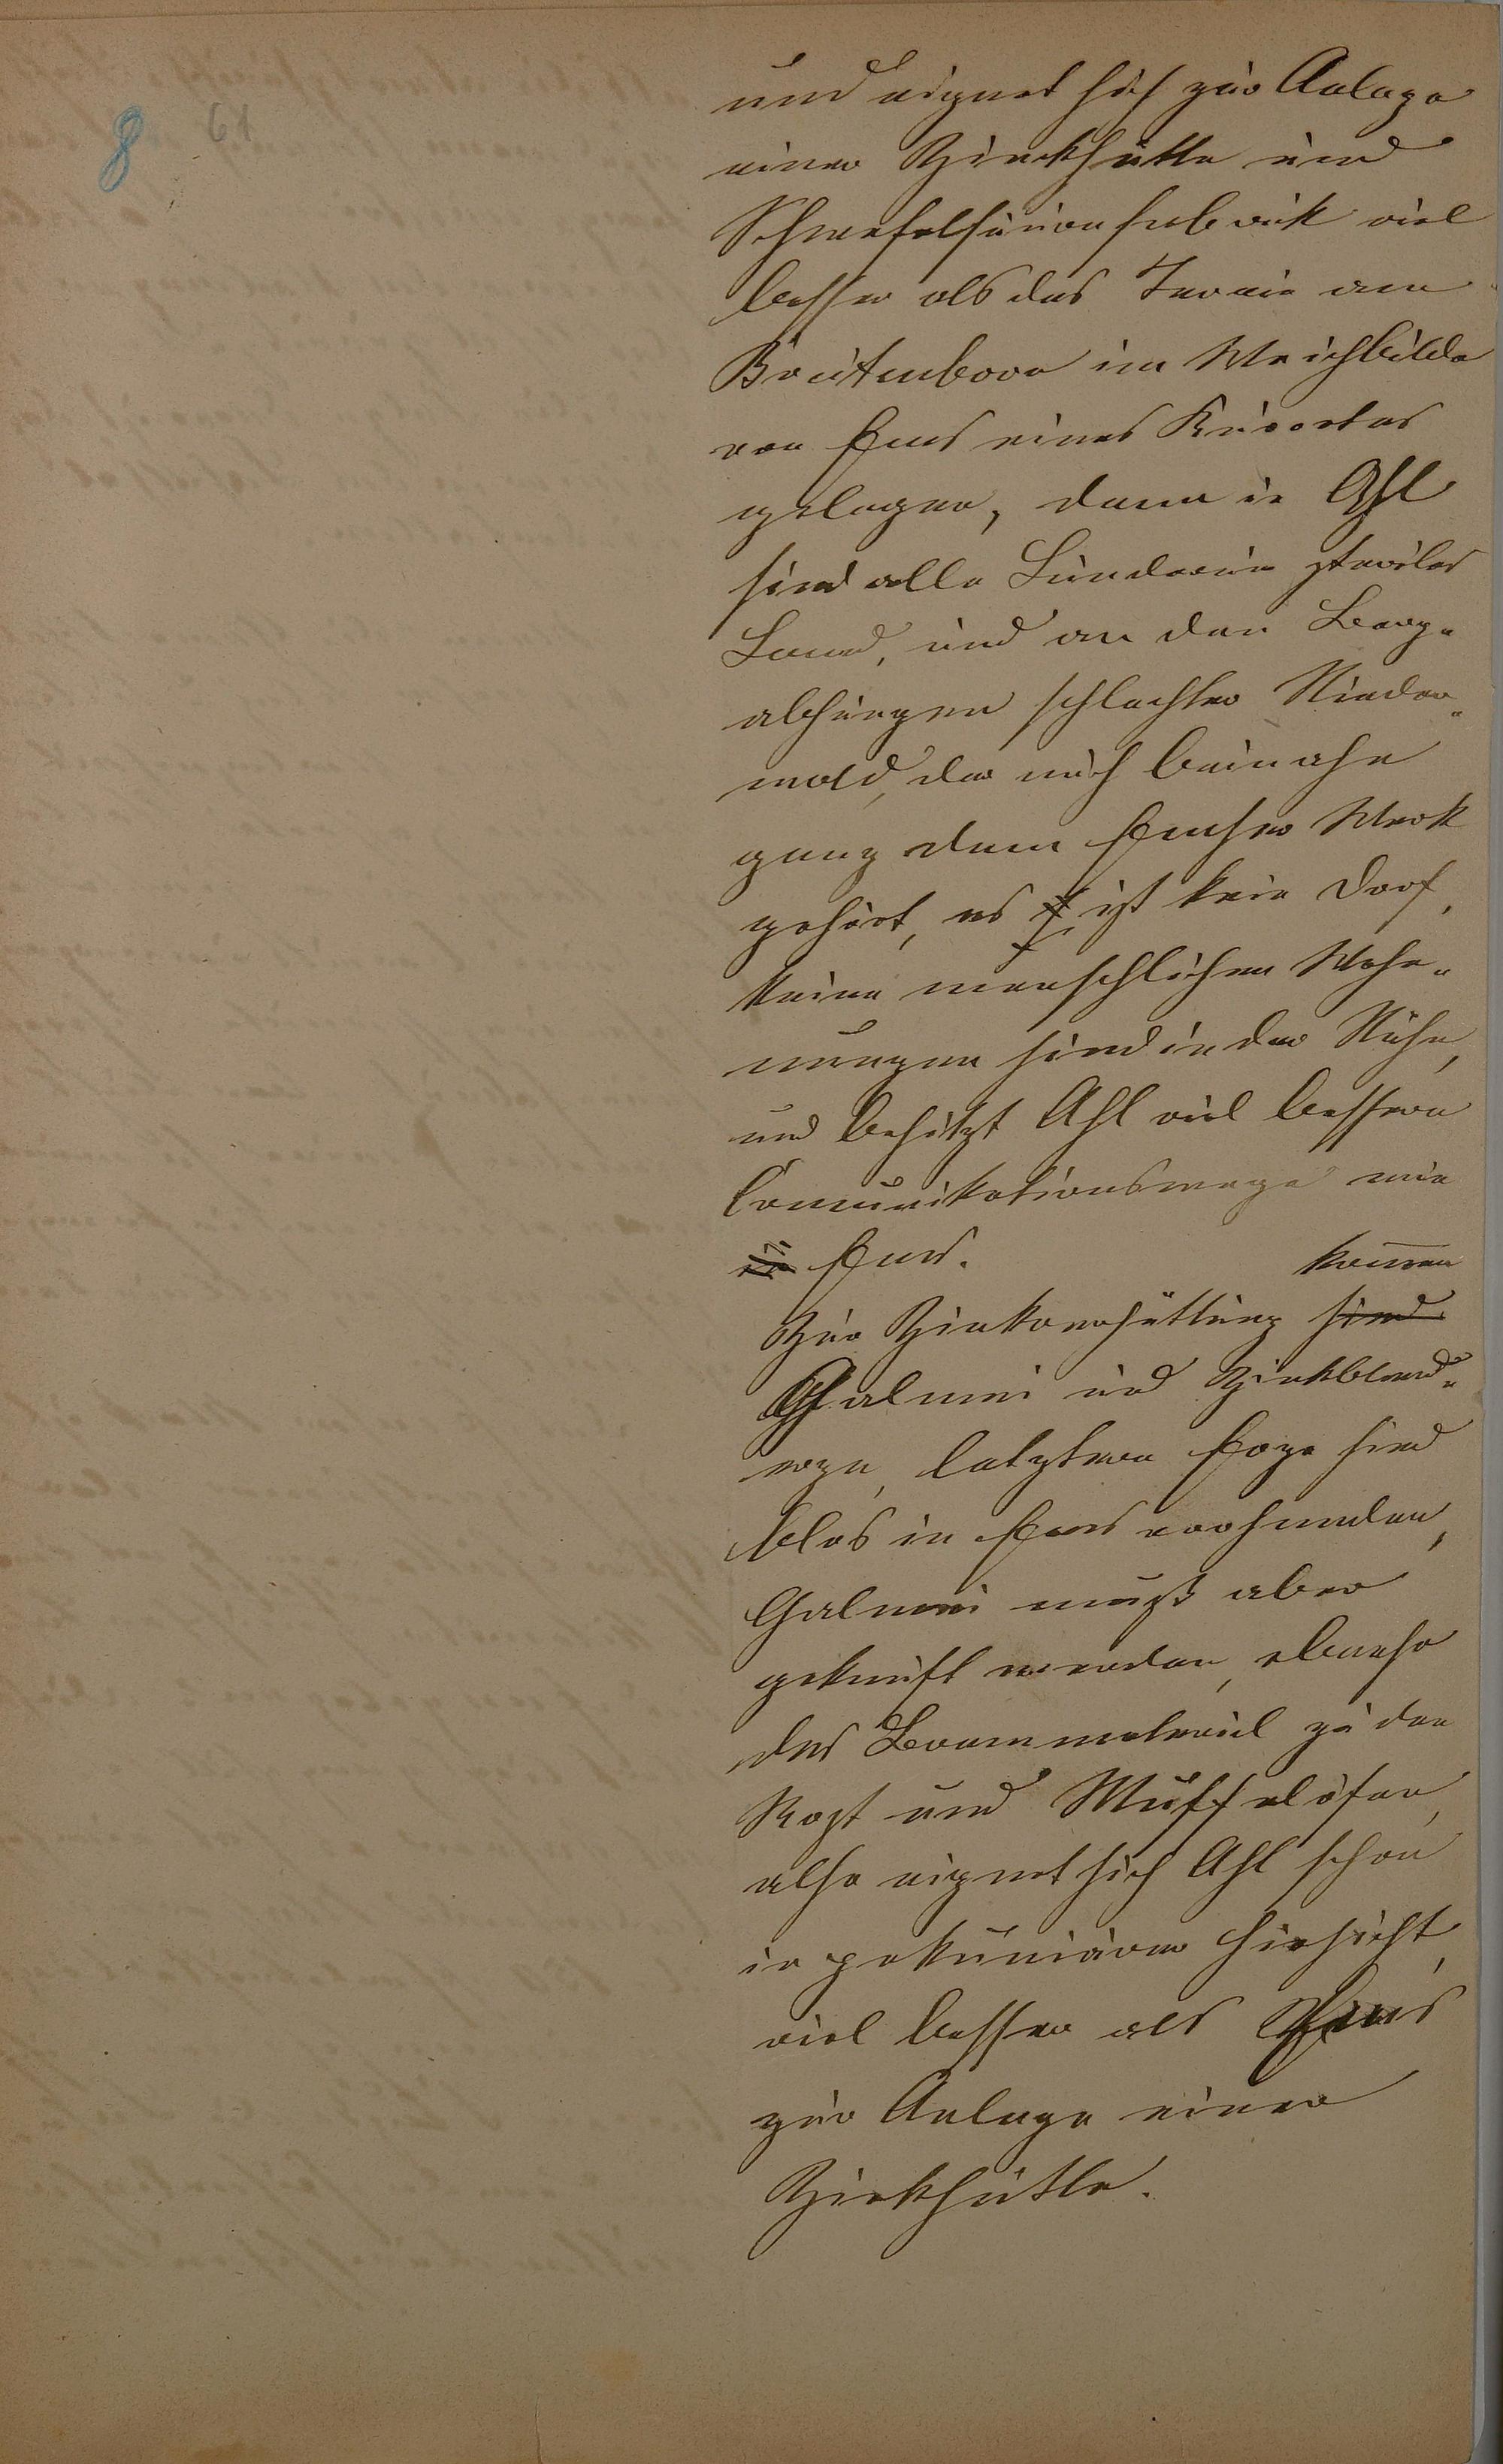 8 61
und eignet sich zur Anlage
einer Zinkhütte und
Schwefelsäurenfabrik viel
besser als das Terrain am
Breitenborn im Weichbilde
von Ems eines Kurortes
gelegen, denn in Ahl
sind alle Ländereien steriles
Land, und an den Berg-
abhängen schlechter Nieder-
wald, der auch beinahe
ganz dem Emser Werk
gehört, es ist kein Dorf,
keine menschlichen Woh-
nungen sind in der Nähe,
und besitzt Ahl viel bessere
Comunikationswege wie
in Ems.
kommen
Zur Zinkverhüttung sind
Galmei und Zinkblend-
erze, letztere Erze sind
blos in Ems vorhanden,
Galmei muß aber
gekauft werden, ebenso
das Brennmaterial zu den
Rost und Muffelöfen,
also eignet sich Ahl schon
in pekuniärer Hinsicht,
viel besser als Ems
zur Anlage einer
Zinkhütte.